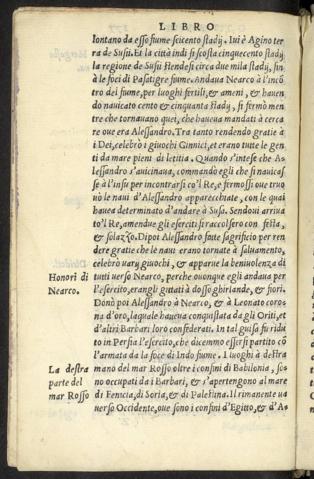 LIBRO
lontano da esso fiume seicento stadij. Iui è Agino ter
ra de Susii. Et la città indi si scosta cinquecento stadij
la regione de Susii stendesi circa due mila stadij, fin
à le foci di Pasatigre fiume. Andaua Nearco à l'incõ
tro del fiume, per luoghi fertili, & ameni, & hauen
do nauicato cento & cinquanta stadij, si fermò men
tre che tornauano quei, che haueua mandati à cerca
re oue era Alessandro. Tra tanto rendendo gratie à
i Dei, celebrò i giuochi Ginnici, et erano tutte le gen
ti da mare pieni di letitia. Quando s'intese che A-
lessandro s'auicinaua, commando egli che si nauicas
se à l'insu per incontrarsi co'l Re, e fermossi oue tro
uò le naui d'Alessandro apparecchiate, con le quai
hauea determinato d'andare à Susa. Sendoui arriua
to'l Re, amendue gli eserciti si raccolsero con festa,
& solazzo. Dipoi Alessandro fatte sagrificio per ren
dere gratie che le naui erano tornate à saluamento,
celebrò uary giuochi, & apparue la beniuolenza di
tutti uerso Nearco, perche ouunque egli andaua per
l'esercito, erangli gittati à dosso ghirlande, & fiori.
Honori di
Nearco.
Donò poi Alessandro à Nearco, & à Leonato coro-
na d'oro, laquale haueua conquistata da gli Oriti, et
d'altri Barbari loro confederati. In tal guisa fu ridu
to in Persia l'esercito, che dicemmo essersi partito cõ
l'armata da la foce di Indo fiume. I luoghi à destra
La destra
parte del
mar Rosso
mano del mar Rosso oltre i confini di Babilonia, so-
no occupati da i Barbari, & s'apertengono al mare
di Fenicia, di Soria, & di Palestina. Il rimanente ua
uerso Occidente, oue sono i confini d'Egitto, & d'A-